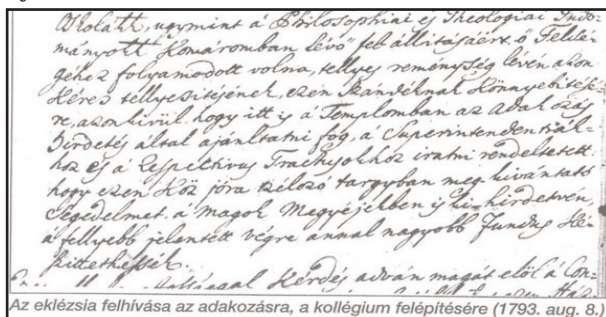 Oskolák, ugymint á Philosophiai és Theologiai Tudo-
mányok Komáromban lévő fel állitásáért ő Felsé-
géhez folyamodott volna, tellyes reménység lévén azon
Kérés tellyesitéjének, ezen Szándéknak Könnyebitésé-
re, azonkivül hogy itt is á Templomban az adakozás
hirdetés által ajánltatni fog, á Superintendentiák-
hoz és á Respectivus Tractusokhoz iratni rendeltetett
hogy ezen Köz jóra tzélozó targyban meg kivántató
Segedelmet á magok Megyéjekben is ki-hirdetvén,
á fellyebb jelentett végre annal nagyobb Fundus Ké-
szittethessék.
Kérdés adván magát elöl á Con-
Az eklézsia felhívása az adakozásra, a kollégium felépítésére (1793. aug. 8.)